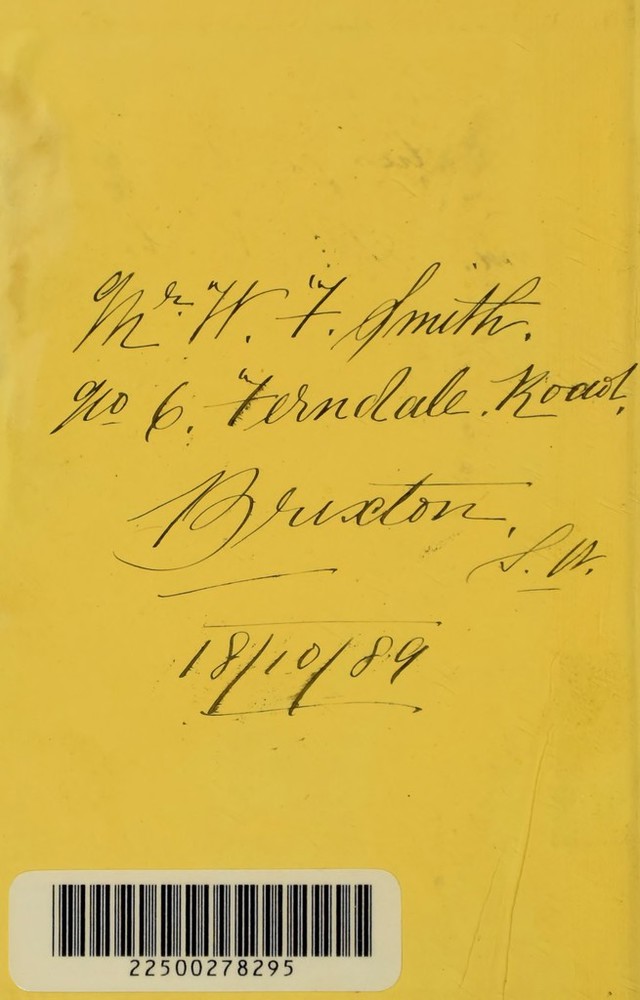 Mr. W. F. Smith.
No 6. Ferndale Road,
Brixton,
S. W.
18/10/89
22500278295